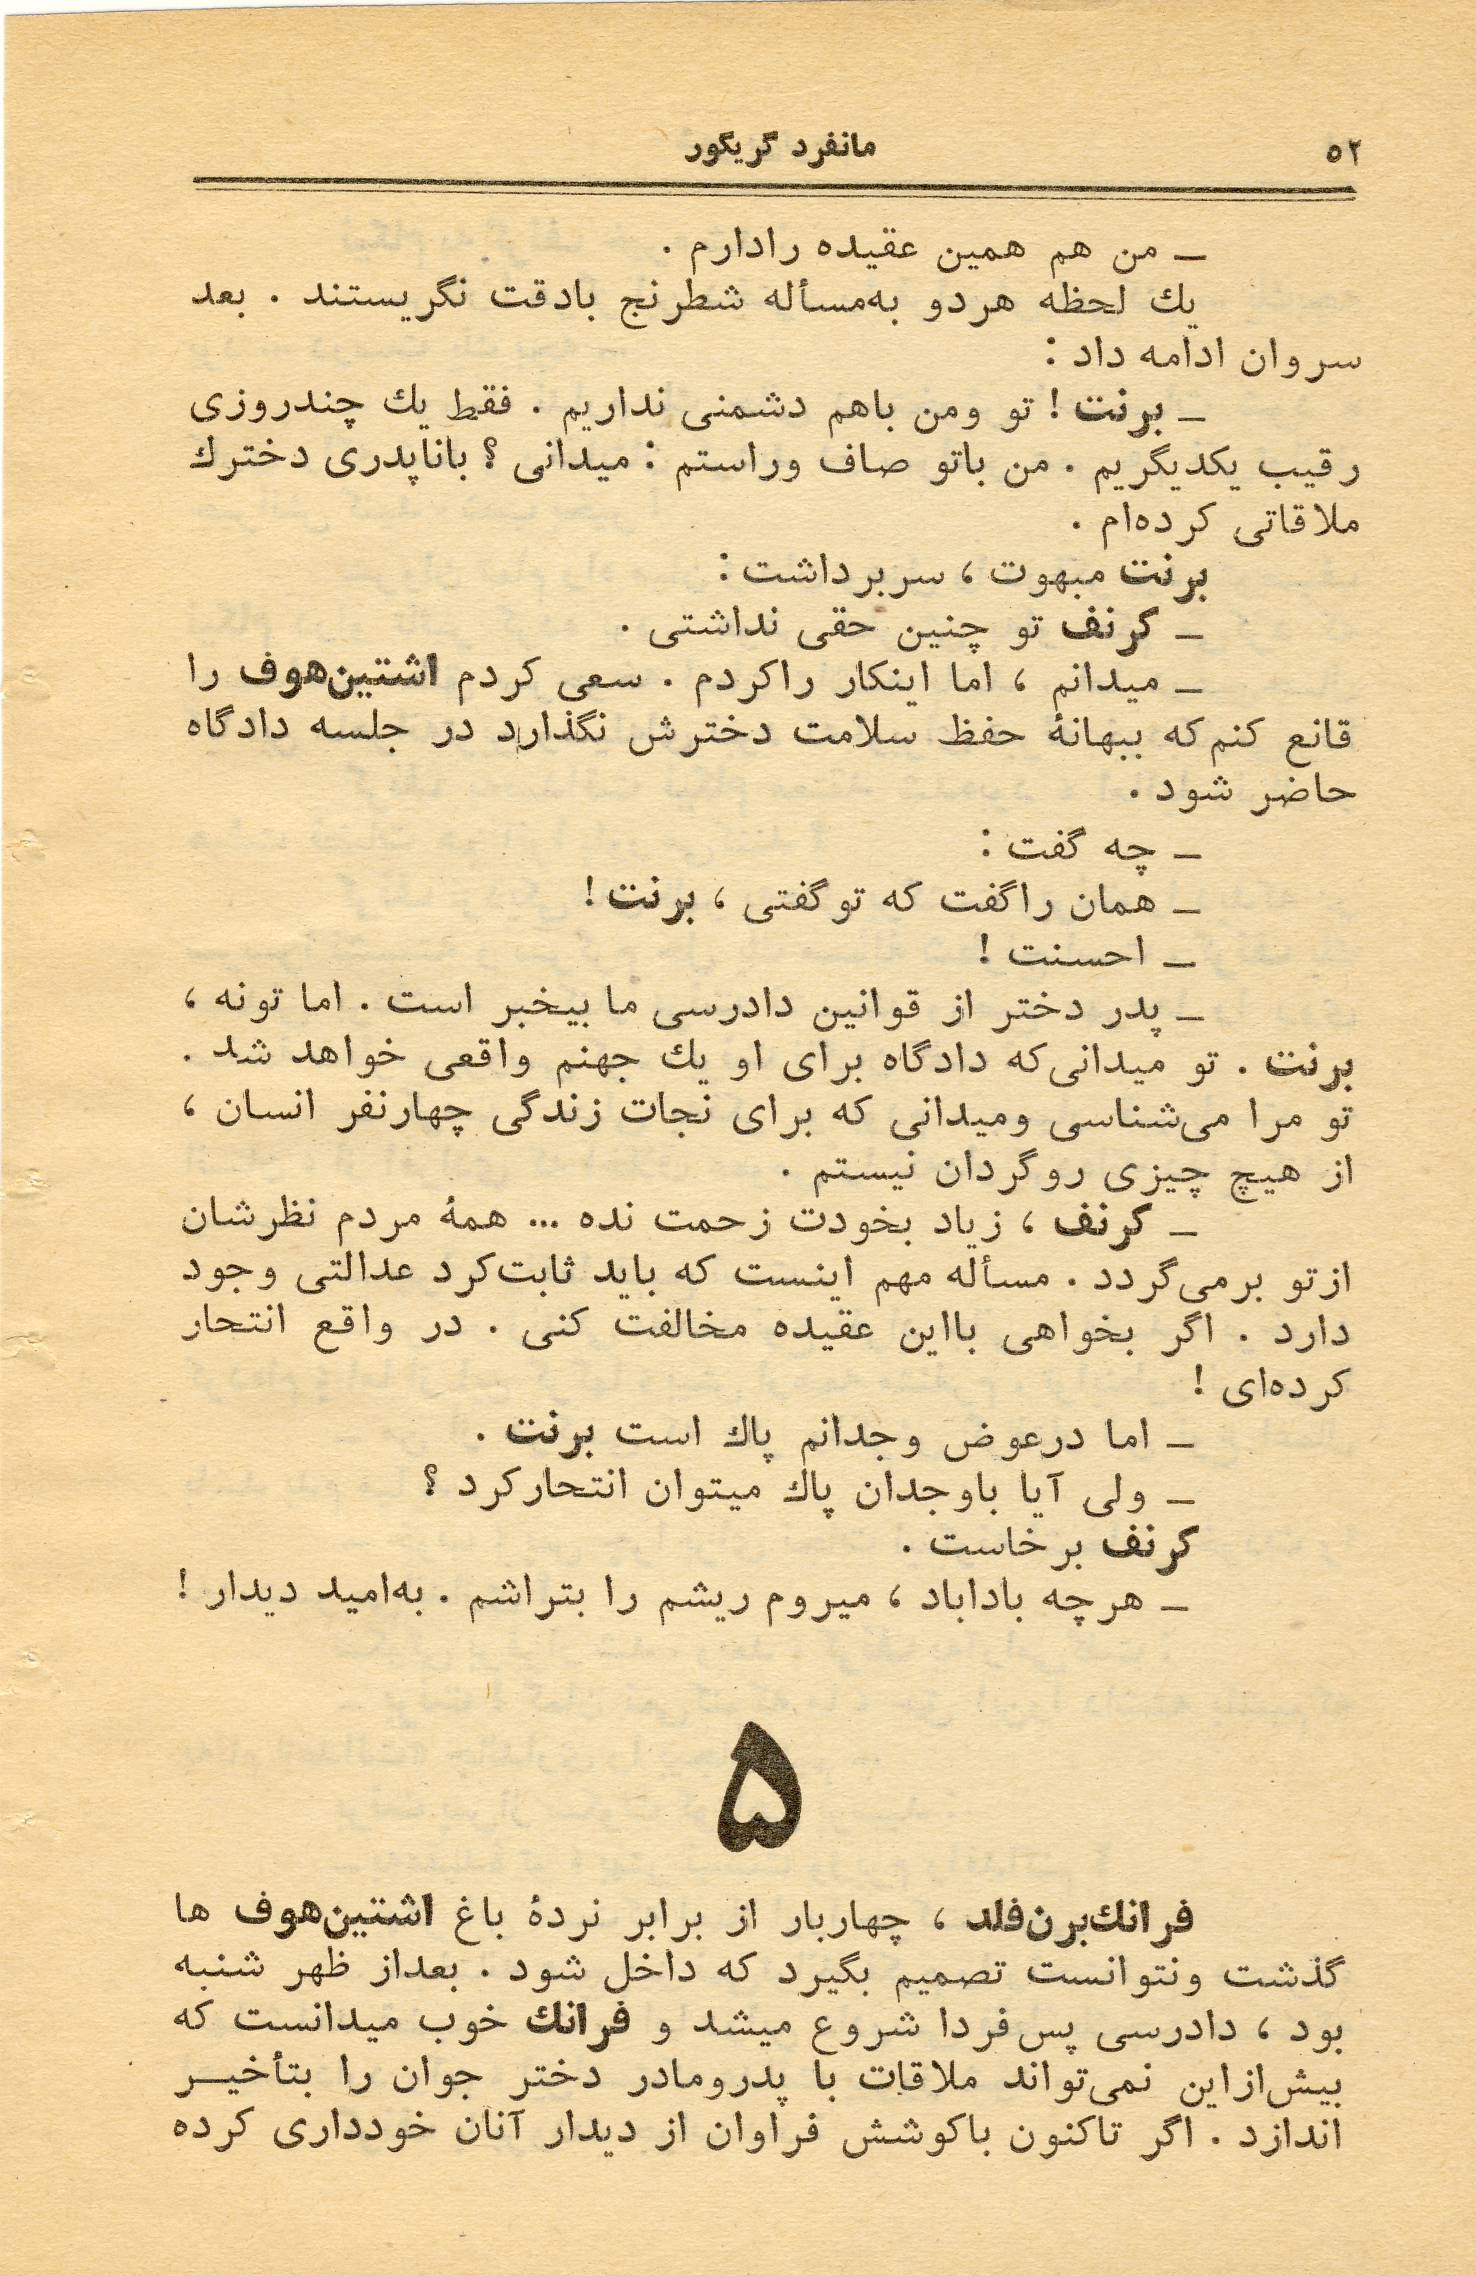 ۵۲
مانفرد گریگور
ـ من هم همین عقیده رادارم .
یك لحظه هردو به‌مسأله شطرنج بادقت نگریستند . بعد
سروان ادامه داد :
ـ برنت ! تو ومن باهم دشمنی نداریم . فقط یك چندروزی
رقیب یکدیگریم . من باتو صاف وراستم : میدانی ؟ باناپدری دخترك
ملاقاتی کرده‌ام .
برنت مبهوت ، سربرداشت :
ـ کرنف تو چنین حقی نداشتی .
ـ میدانم ، اما اینکار راکردم . سعی کردم اشتین‌هوف را
قانع کنم‌که ببهانهٔ حفظ سلامت دخترش نگذارد در جلسه دادگاه
حاضر شود .
ـ چه گفت :
ـ همان راگفت که توگفتی ، برنت !
ـ احسنت !
ـ پدر دختر از قوانین دادرسی ما بیخبر است . اما تونه ،
برنت . تو میدانی‌که دادگاه برای او یك جهنم واقعی خواهد شد .
تو مرا می‌شناسی ومیدانی که برای نجات زندگی چهارنفر انسان ،
از هیچ چیزی روگردان نیستم .
ـ کرنف ، زیاد بخودت زحمت نده ... همهٔ مردم نظرشان
ازتو برمی‌گردد . مسأله مهم اینست که باید ثابت‌کرد عدالتی وجود
دارد . اگر بخواهی بااین عقیده مخالفت کنی . در واقع انتحار
کرده‌ای !
ـ اما درعوض وجدانم پاك است برنت .
ـ ولی آیا باوجدان پاك میتوان انتحارکرد ؟
کرنف برخاست .
ـ هرچه باداباد ، میروم ریشم را بتراشم . به‌امید دیدار !
۵
فرانك‌برن‌فلد ، چهاربار از برابر نردهٔ باغ اشتین‌هوف ها
گذشت ونتوانست تصمیم بگیرد که داخل شود . بعداز ظهر شنبه
بود ، دادرسی پس‌فردا شروع میشد و فرانك خوب میدانست که
بیش‌ازاین نمی‌تواند ملاقات با پدرومادر دختر جوان را بتأخیر
اندازد . اگر تاکنون باکوشش فراوان از دیدار آنان خودداری کرده